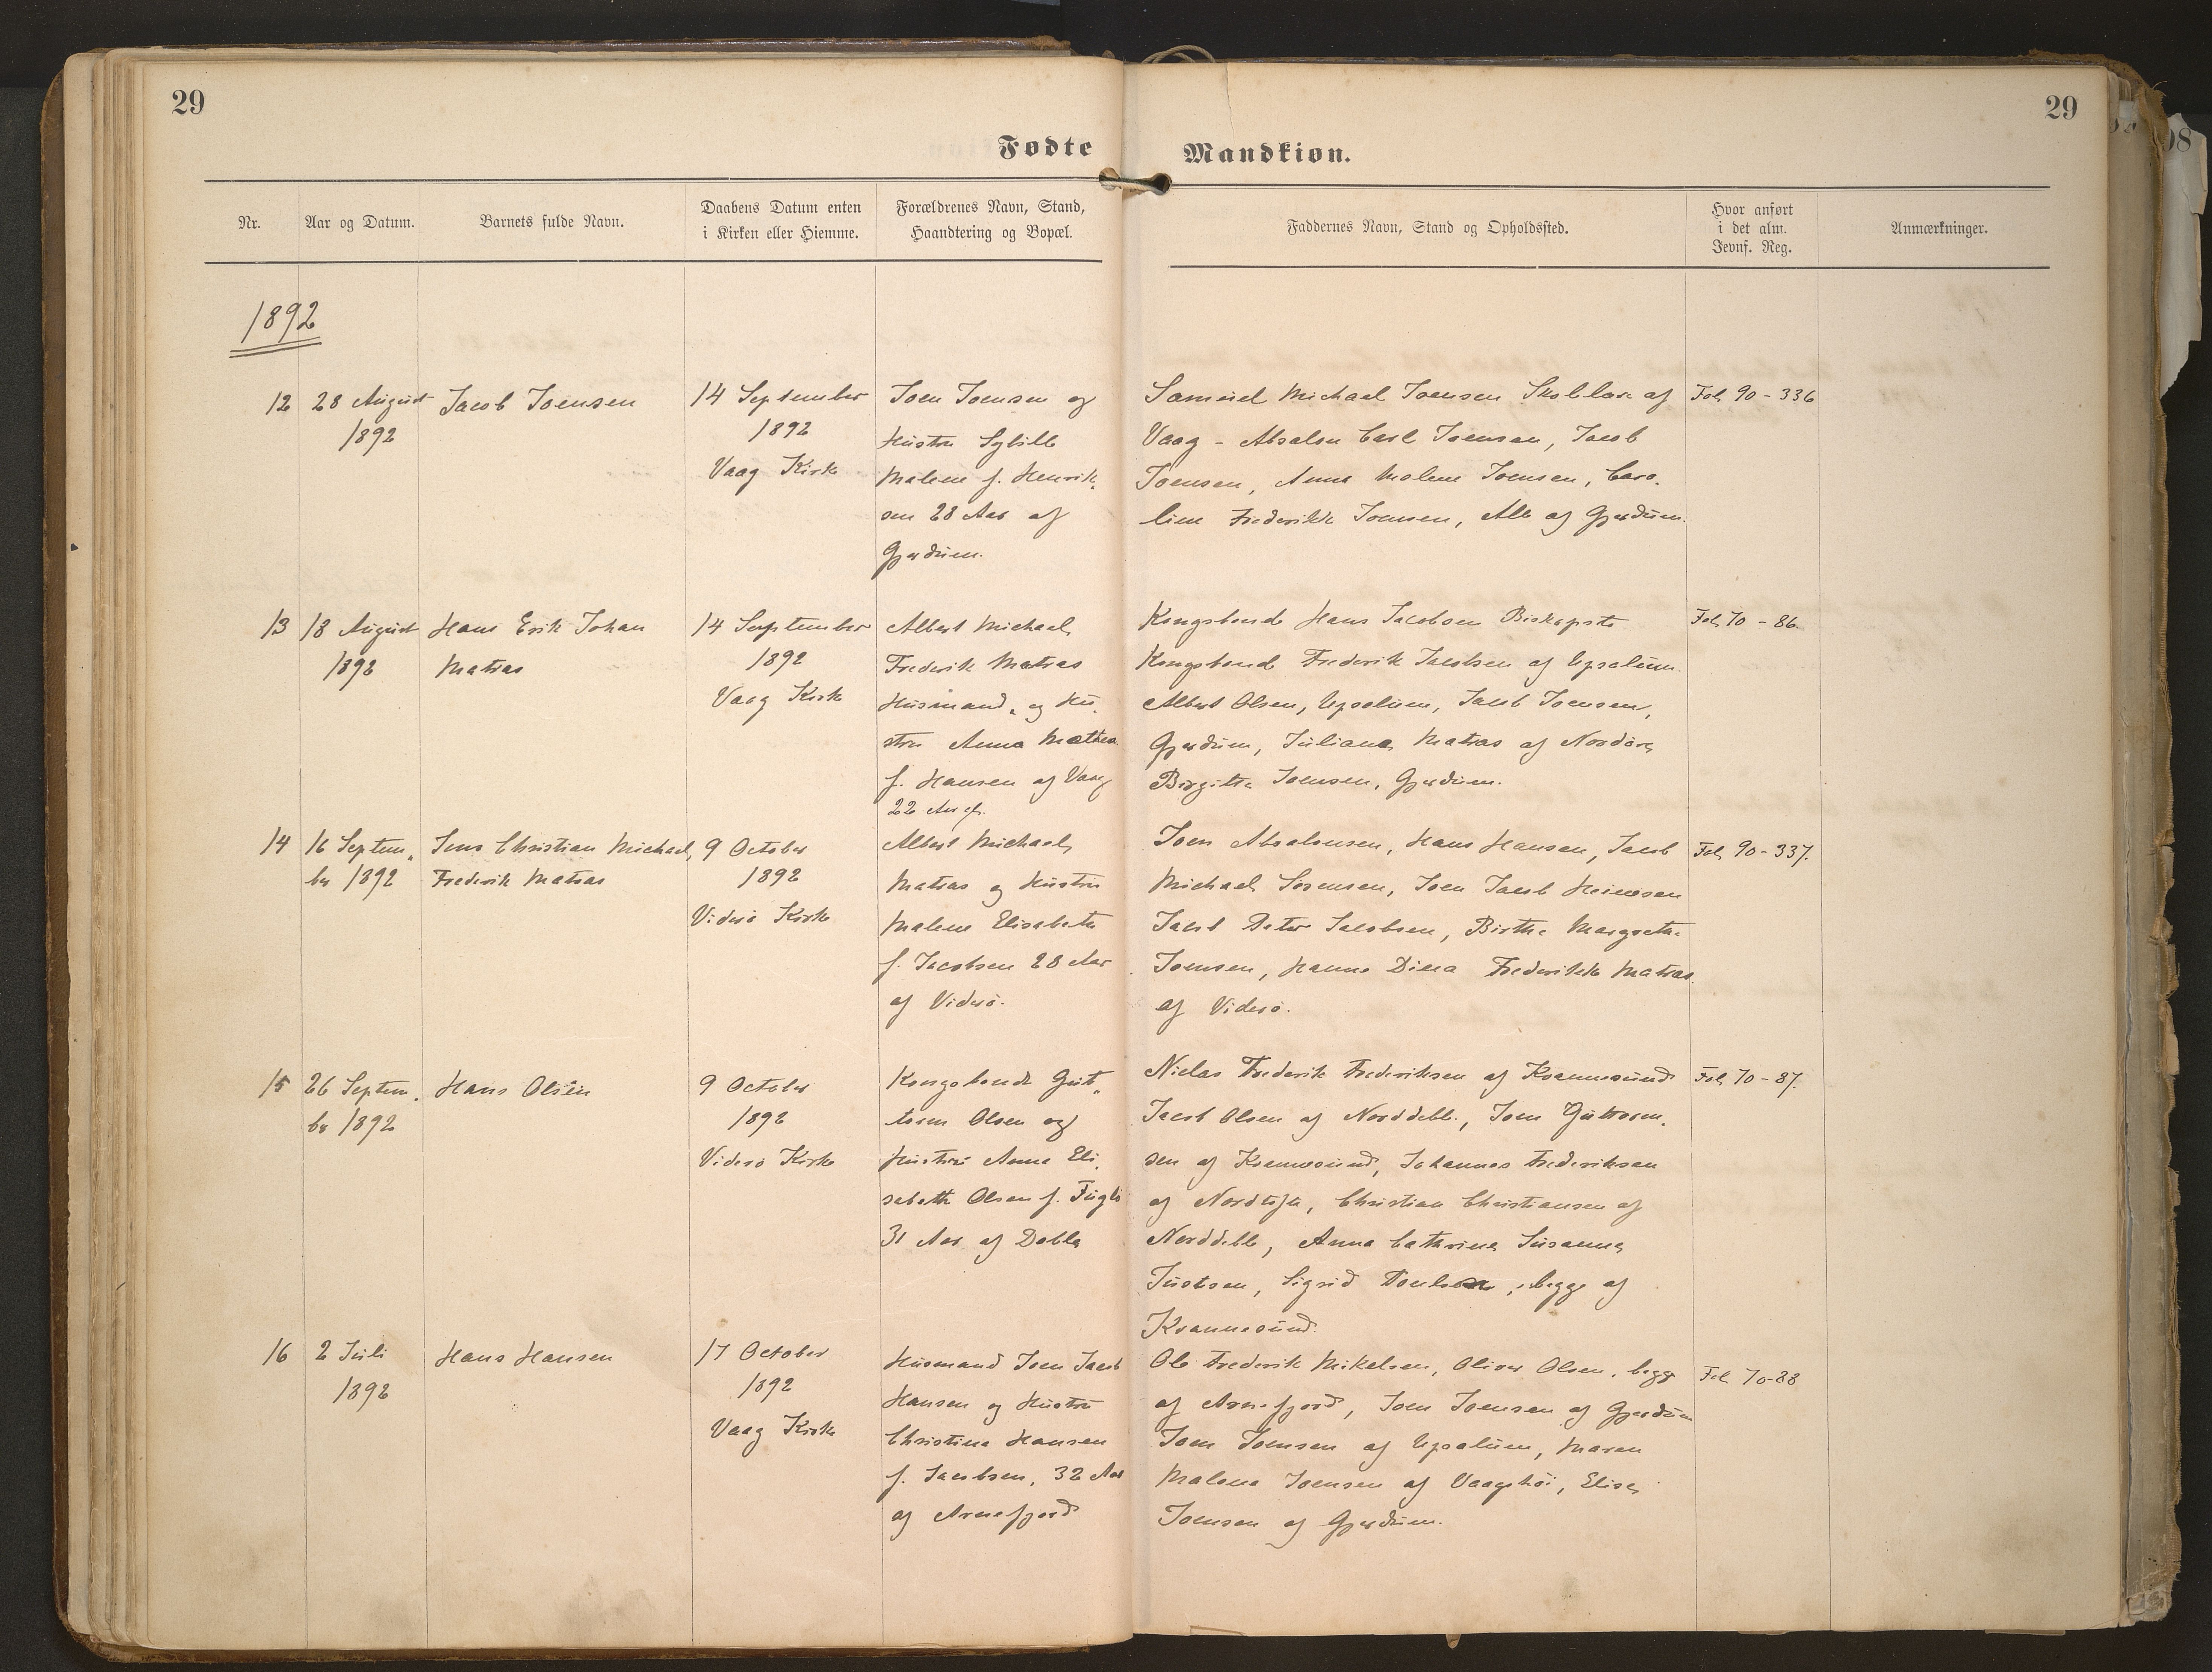 29
29
Fødte Mandkiøn.
Nr.
Aar og Datum.
Barnets fulde Navn.
Daabens Datum enten
i Kirken eller Hiemme.
Forældrenes Navn, Stand,
Haandtering og Bopæl.
Faddernes Navn, Stand og Opholdssted.
Hvor anført
i det alm.
Jevnf. Reg.
Anmærkninger.
1892
12
28 August
1892
Jacob Joensen
14 September
1892
Vaag Kirke
Joen Joensen og
Hustru Sybille
Malene f. Henrik-
sen 28 Aar af
Gjerdum.
Samuel Michael Joensen Skollære af
Vaag - Absalon Carl Joensen, Jacob
Joensen, Anna Malene Joensen, Caro-
line Frederikke Joensen, Alle af Gjerdum.
Fol. 90 - 336
13
18 August
1892
Hans Erik Johan
Matras
14 September
1892
Vaag Kirke
Albert Michael
Frederik Matras
Husmand, og Hu-
stru Anna Mathea
f. Hansen af Vaag
22 Aar gl.
Kongsbonde Hans Jacobsen Biskopstø
Kongsbonde Frederik Jacobsen af Upsalum.
Albert Olsen, Upsalum, Jacob Joensen,
Gjerdum, Juliane Matras af Nordøre
Birgitte Joensen, Gjerdum.
Fol. 70 - 86.
14
16 Septem-
ber 1892
Jens Christian Michael,
Frederik Matras
9 October
1892
Viderø Kirke
Albert Michael
Matras og Hustru
Malene Elisabeth
f. Jacobsen 28 Aar
af Viderø.
Joen Absalonsen, Hans Hansen, Jacob
Michael Sørensen, Joen Jacob Heinesen
Jacob Peter Jacobsen, Birthe Margrethe
Joensen, Hanne Dina Frederikke Matras
af Viderø.
Fol. 90 - 337.
15
26 Septem-
ber 1892
Hans Olsen
9 October
1892
Viderø Kirke
Kongsbonde Gut-
torm Olsen og
Hustru Anna Eli-
sabeth Olsen f. Fuglø
31 Aar af Deble
Niclas Frederik Frederiksen af Kvannesund
Jacob Olsen af Norddeble, Joen Guttorm-
sen af Kvannesund, Johannes Frederiksen
af Nordtofte, Christian Christiansen af
Norddeble, Anna Cathrine Susanna
Justesen, Sigrid Poulsen, begge af
Kvannesund.
Fol. 70 - 87.
16
2 Juli
1892
Hans Hansen
17 October
1892
Vaag Kirke
Husmand Joen Jacob
Hansen og Hustru
Christine Hansen
f. Jacobsen, 32 Aar
af Arnefjord
Ole Frederik Mikelsen, Oliver Olsen, begge
af Arnefjord, Joen Joensen af Gjerdum
Joen Joensen af Upsalum, Maren
Malene Joensen af Vaagshøi, Elise
Joensen af Gjerdum.
Fol. 70-88